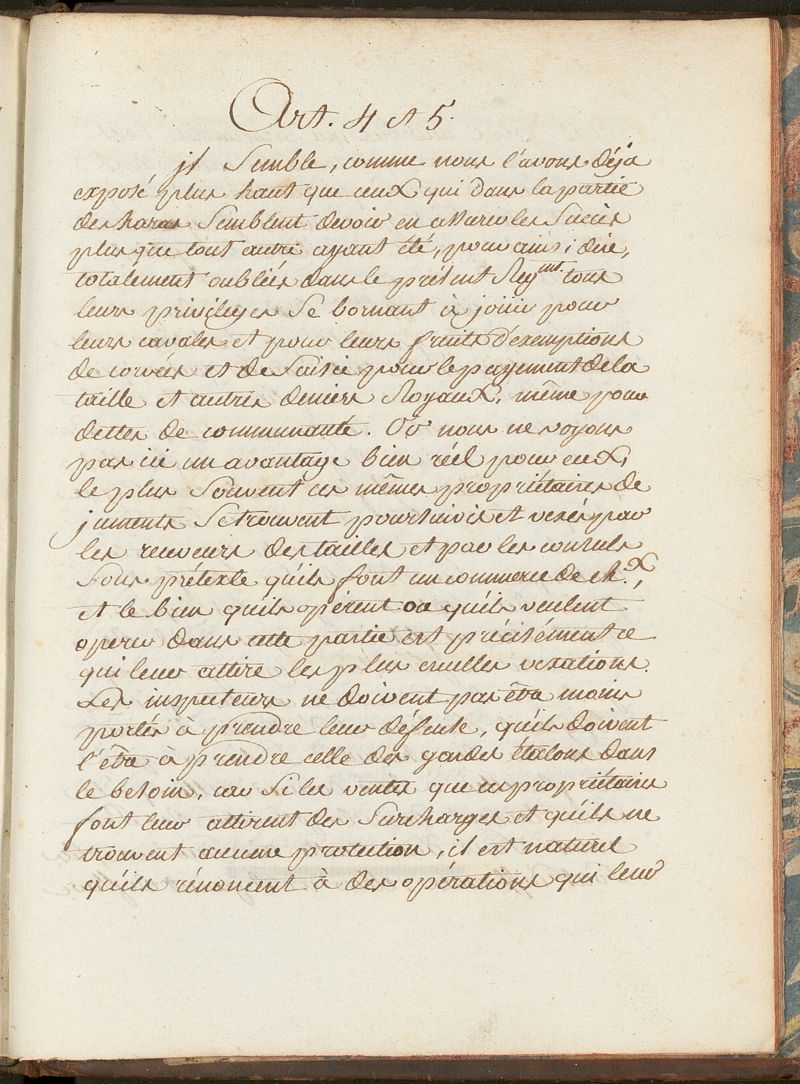 Art. 4 et 5.
il Semble, comme nous l'avons déja
exposé plus haut que ceux qui dans la partie
des haras Semblent devoir en assurer les Succès
plus que tout autre ayant été, pour ainsi dire,
totalement oubliés dans le présent Reg.mt tous
leurs privileges Se bornant à jouir pour
leurs cavales et pour leurs fruits d'exemptions
de corvées et de Saisie pour le payement de la
taille et autres deniers Royaux, même pour
dettes de communauté. Or nous ne voyons
pas ici un avantage bien réel pour eux,
le plus Souvent ces mêmes propriétaires de
juments Se trouvent poursuivis et vexés par
les receveurs des tailles et par les consuls
Sous prétexte qu'ils font un commerce de ch.x,
et le bien qu'ils opérent ou qu'ils veulent
operer dans cette partie est précisément ce
qui leur attire les plus cruelles vexations.
Les inspecteurs ne doivent pas être moins
portés à prendre leur défense, qu'ils doivent
l'être à prendre celle des gardes étalons dans
le besoin, car Si les ventes que ces propriétaires
font leur attirent des Surcharges et qu'ils ne
trouvent aucune protection, il est naturel
qu'ils rénoncent à des opérations qui leur